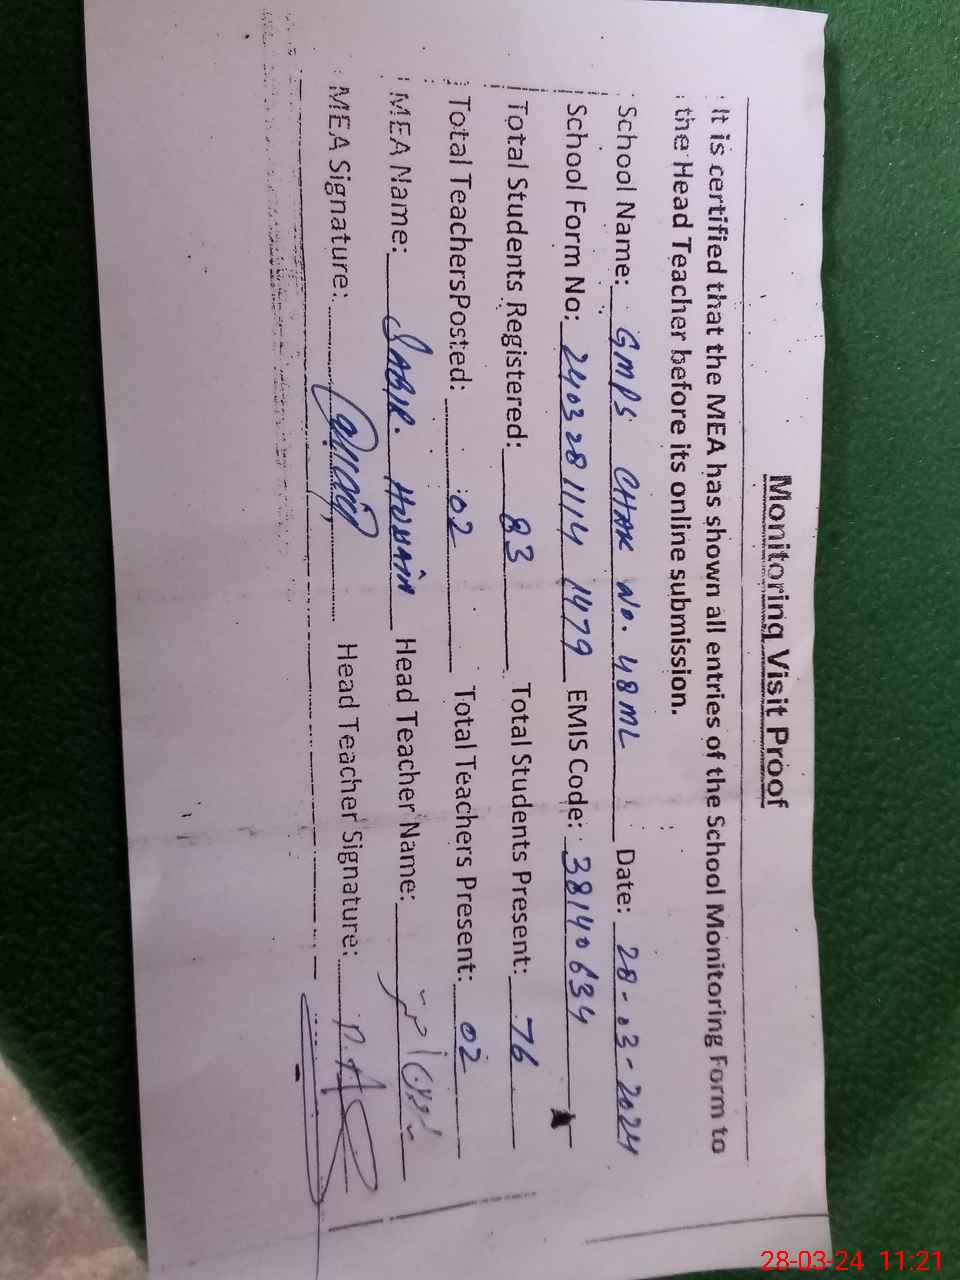 Monitoring Visit Proof
It is certified that the MEA has shown all entries of the School Monitoring Form to
the Head Teacher before its online submission.
School Name: GMPS CHAK No. 48ML Date: 28-03-2024
School Form No: 2403281114 1479 EMIS Code: 38140634
Total Students Registered: 83 Total Students Present: 76
Total TeachersPosted: 02 Total Teachers Present: 02
MEA Name: SABIR HUSSAIN Head Teacher Name:
MEA Signature: Head Teacher Signature:
28-03-24 11:21